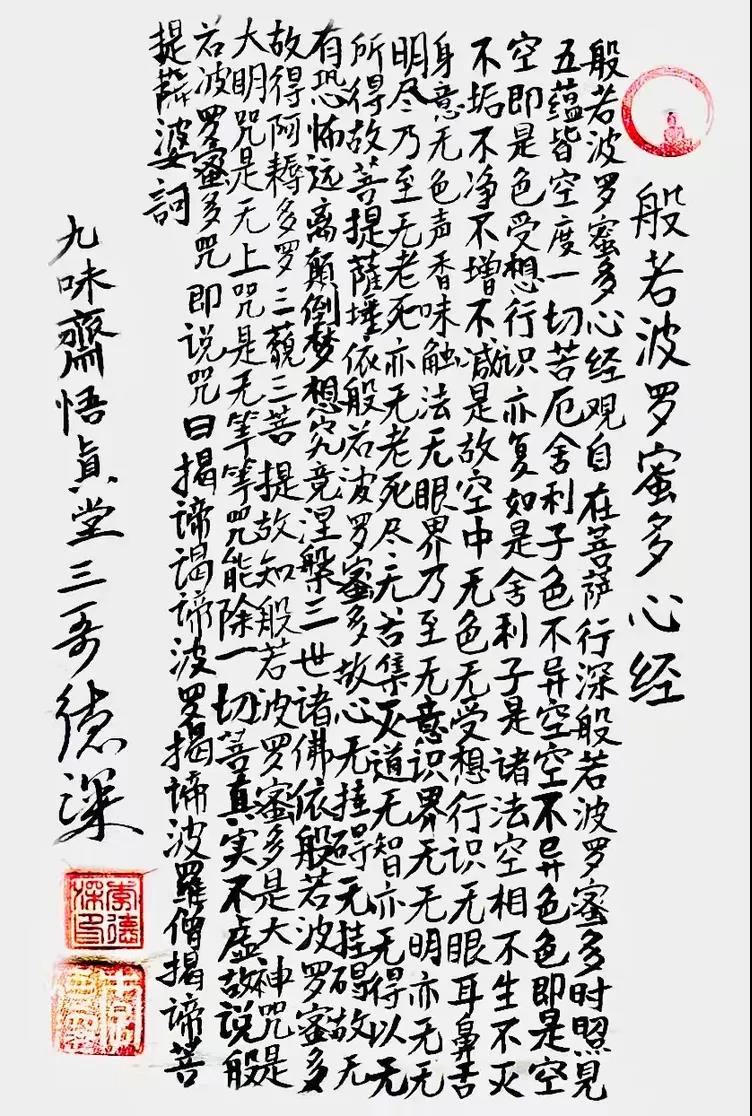 般若波罗蜜多心经
般若波罗蜜多心经观自在菩萨行深般若波罗蜜多时照见
五蕴皆空度一切苦厄舍利子色不异空空不异色色即是空
空即是色受想行识亦复如是舍利子是诸法空相不生不灭
不垢不净不增不减是故空中无色无受想行识无眼耳鼻舌
身意无色声香味触法无眼界乃至无意识界无无明亦无无
明尽乃至无老死亦无老死尽无苦集灭道无智亦无得以无
所得故菩提薩埵依般若波罗蜜多故心无挂碍无挂碍故无
有恐怖远离颠倒梦想究竟涅槃三世诸佛依般若波罗蜜多
故得阿耨多罗三藐三菩提故知般若波罗蜜多是大神咒是
大明咒是无上咒是无等等咒能除一切苦真实不虚故说般
若波罗蜜多咒即说咒曰揭谛揭谛波罗揭谛波羅僧揭谛菩
提薩婆訶
九味齋悟真堂三哥德深
李德深印